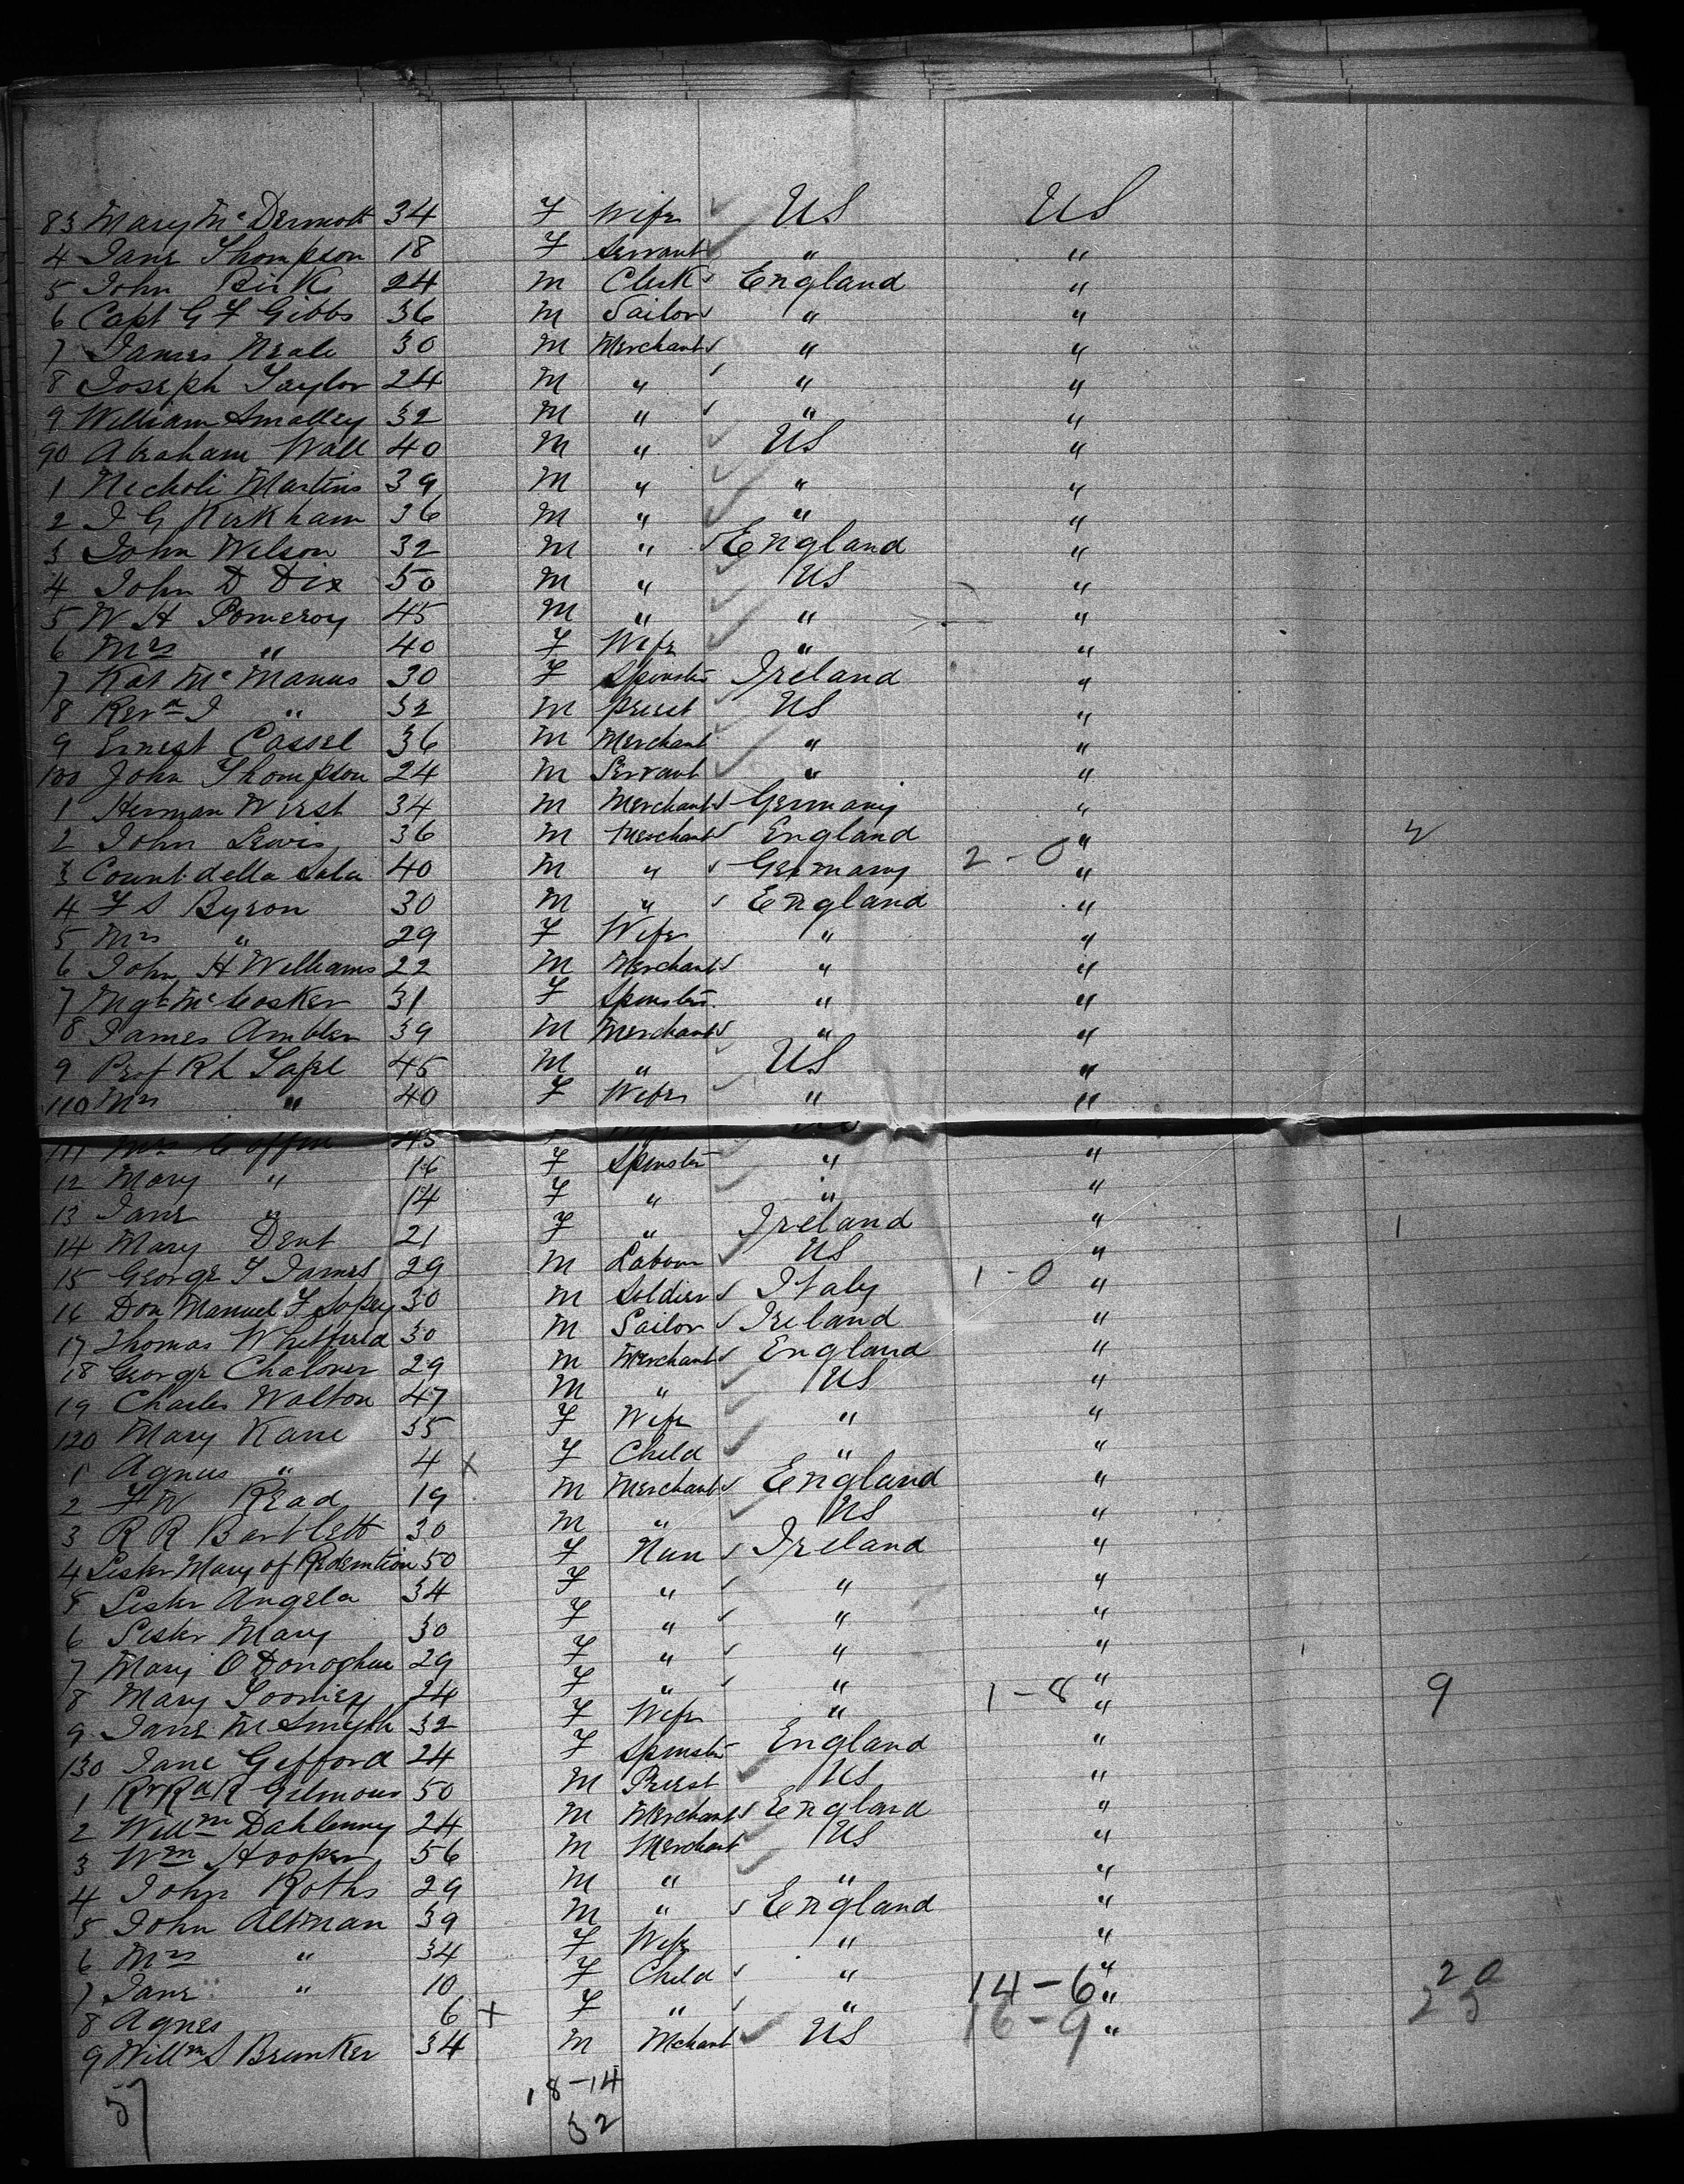 83 Mary McDermott 34 F Wife US US
4 Jane Thompson 18 F Servant " "
5 John Birk 24 M Clerk England "
6 Capt G F Gibbs 36 M Sailor " "
7 James Neale 30 M Merchant " "
8 Joseph Taylor 24 M " " "
9 William Smalley 32 M " " "
90 Abraham Wall 40 M " US "
1 Nicholi Martins 39 M " " "
2 J G Kirkham 36 M " " "
3 John Wilson 32 M " England "
4 John D Dix 50 M " US "
5 W H Pomeroy 45 M " " "
6 Mrs " 40 F Wife " "
7 Kat McManus 30 F Spinster Ireland "
8 Revd J " 32 M Priest US "
9 Ernest Cassel 36 M Merchant " "
100 John Thompson 24 M Servant " "
1 Herman Wirst 34 M Merchant Germany "
2 John Lewis 36 M Merchant England "
3 Count della Sala 40 M " Germany 2-0 "
4 F S Byron 30 M " England "
5 Mrs " 29 F Wife " "
6 John H Williams 22 M Merchant " "
7 Mgt McCosker 31 F Spinster " "
8 James Ambler 39 M Merchant " "
9 Prof R L 45 M " US "
110 Mrs " 40 F Wife " "
111 Mrs Coffin 45 US "
12 Mary " 16 F Spinster " "
13 Jane " 14 F " " "
14 Mary Dent 21 F " Ireland " 1
15 George T James 29 M Labour US "
16 Don Manuel F 30 M Soldier Italy 1-0 "
17 Thomas Whitfield 30 M Sailor Ireland "
18 George Chaloner 29 M Merchant England "
19 Charles Walton 47 M " US "
120 Mary Kane 35 F Wife " "
1 Agnes " 4 x F Child " "
2 F W Read 19 M Merchant England "
3 R R Bartlett 30 M " US "
4 Sister Mary of Redemtion 50 F Nun Ireland "
5 Sister Angela 34 F " " "
6 Sister Mary 30 F " " "
7 Mary O Donoghue 29 F " " "
8 Mary 24 F " " 1-8 " 9
9 Jane M Smyth 32 F Wife " "
130 Jane Gifford 24 F Spinster England "
1 Rt Rd R Gilmour 50 M Priest US "
2 Willm 24 M Merchant England "
3 Wm Hooper 56 M Merchant US "
4 John Roths 29 M " " "
5 John Altman 39 M " England "
6 Mrs " 34 F Wife " "
7 Jane " 10 F Child " "
8 Agnes 6 + F " " 14-6 " 20
9 Willm S Brunker 34 M Mchant US 16-9 " 23
57 18-14
32